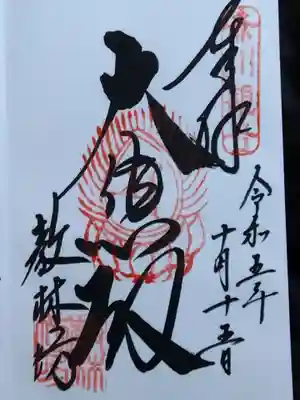 奉拝
大悲殿
令和五年
十月十五日
教林坊